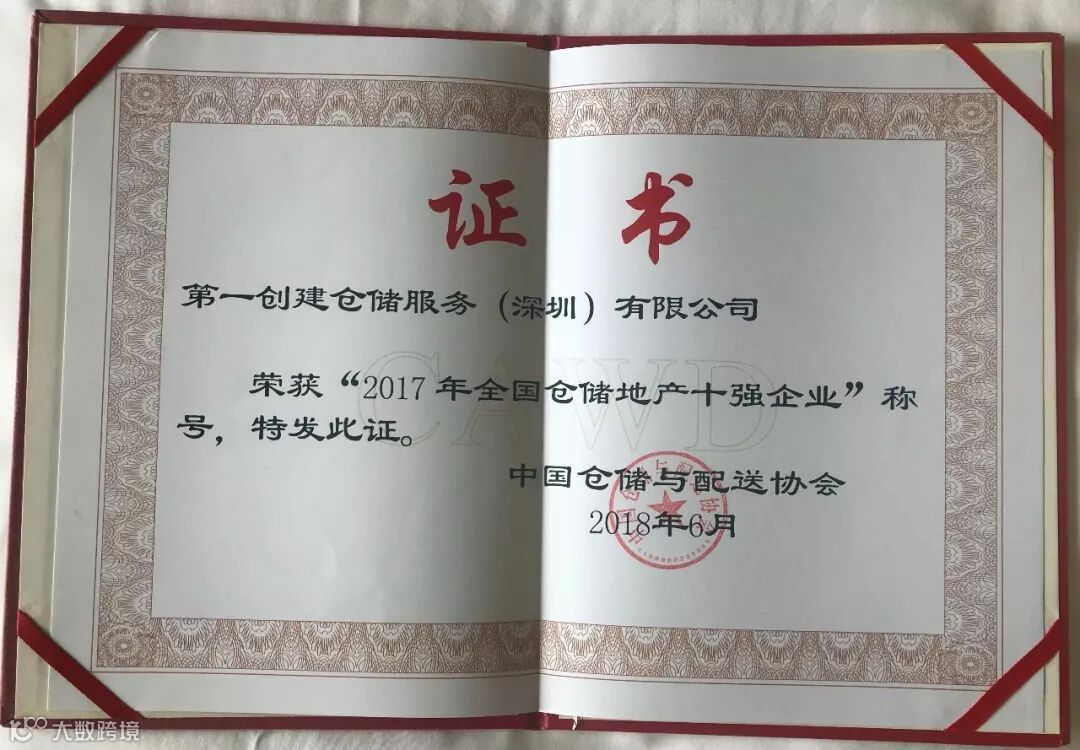 证 书
第一创建仓储服务（深圳）有限公司
荣获“2017年全国仓储地产十强企业”称
号，特发此证。
CAWD
中国仓储与配送协会
2018年6月
大数跨境